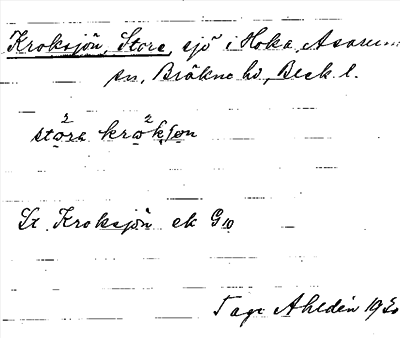 Kroksjön, Stora, sjö i Hoka, Asarums
sn, Bräkne hd, Blek. l.
stora kroksjøn
St. Kroksjön ek G10
Tage Ahldén 1930